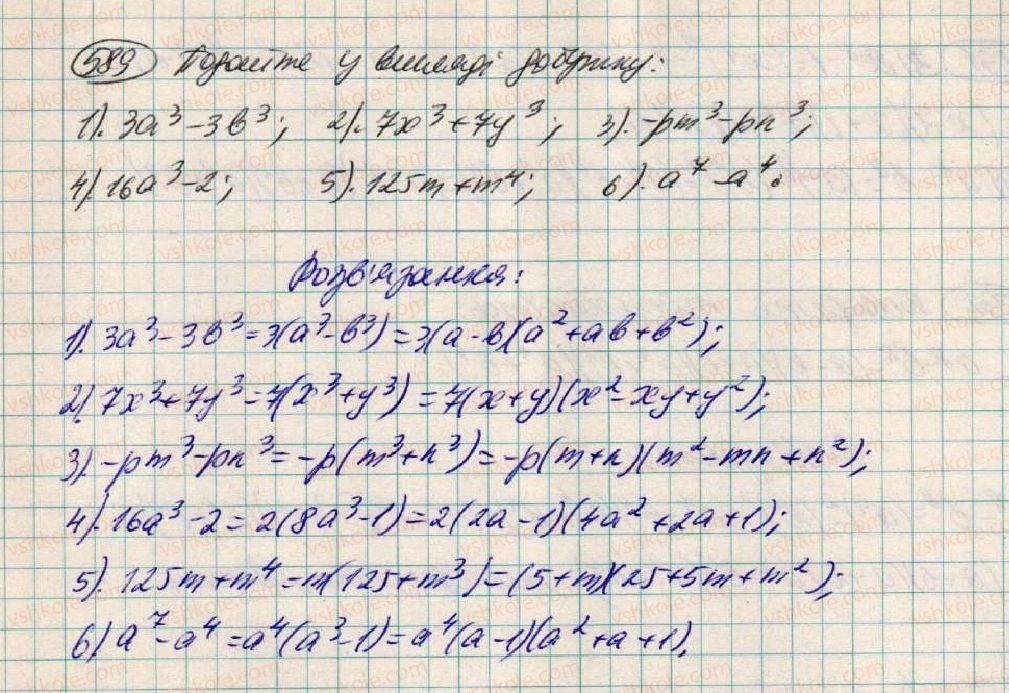 589 Подайте у вигляді добутку:
1). 3a³-3b³; 2). 7x³+7y³; 3). -pm³-pn³;
4). 16a³-2; 5). 125m+m⁴; 6). a⁷-a⁴.
Розв'язання:
1). 3a³-3b³=3(a³-b³)=3(a-b)(a²+ab+b²);
2). 7x³+7y³=7(x³+y³)=7(x+y)(x²-xy+y²);
3). -pm³-pn³=-p(m³+n³)=-p(m+n)(m²-mn+n²);
4). 16a³-2=2(8a³-1)=2(2a-1)(4a²+2a+1);
5). 125m+m⁴=m(125+m³)=(5+m)(25+5m+m²);
6) a⁷-a⁴=a⁴(a³-1)=a⁴(a-1)(a²+a+1).
vshkole.com